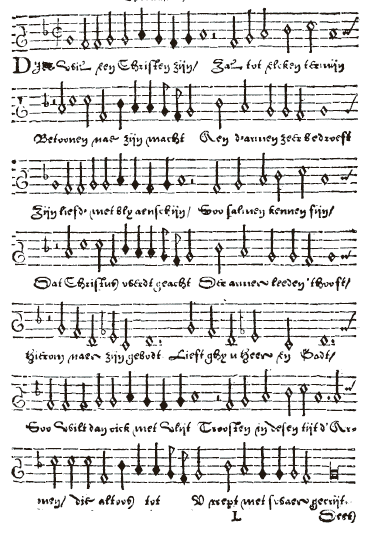 Dye wil een Christen zijn/ Zal tot elcken termijn
Betoonen nae zijn macht Aen d'armen zeer bedroeft
Zijn liefd' met bly aenschijn/ Soo salmen kennen fijn/
Dat Christus werdt geacht Der armer leeden 'thooft/
Hierom naer zijn gebodt Lieft ghy u Heer en Godt/
Soo wilt dan rick met vlijt Troosten in desen tijt d'Ar-
men/ die altoos tot U roept met gecrijt.
L